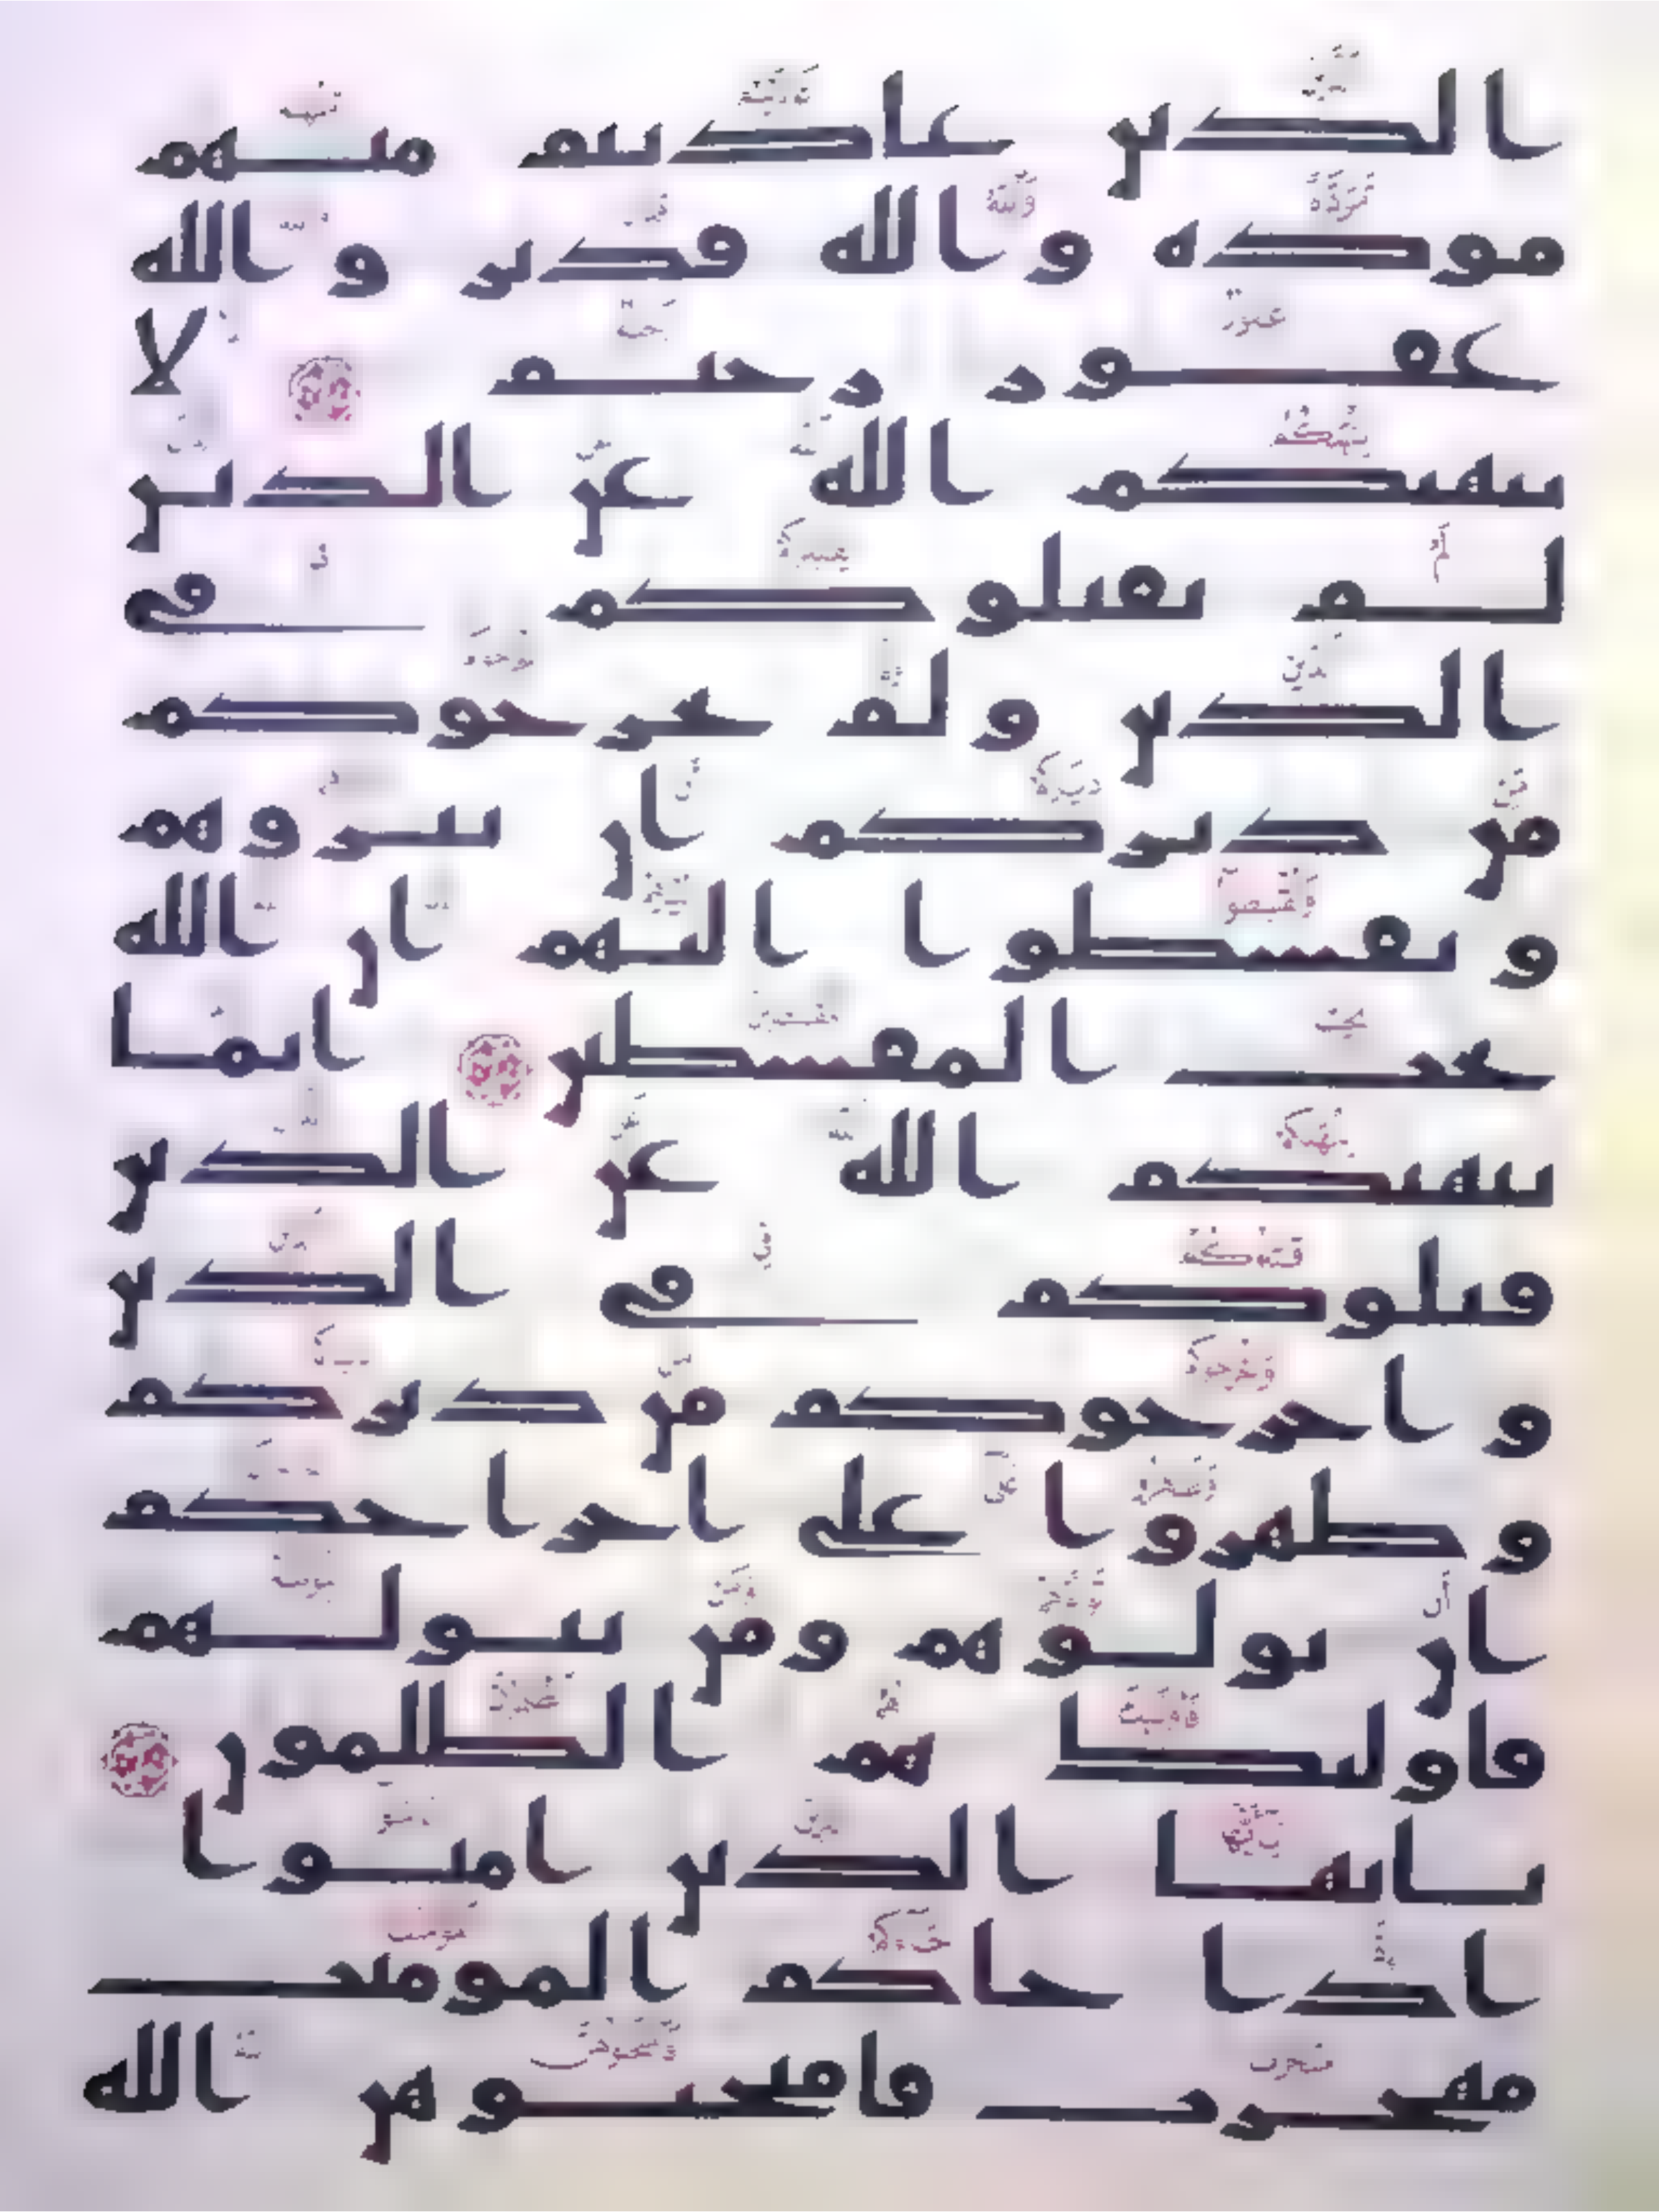 الذين عاديتم منهم
مودة والله قدير والله
غفور رحيم لا
ينهيكم الله عن الذين
لم يقتلوكم في
الدين ولم يخرجوكم
من ديركم ان تبروهم
وتقسطوا اليهم ان الله
يحب المقسطين انما
ينهيكم الله عن الذين
قتلوكم في الدين
واخرجوكم من ديركم
وظهروا على اخراجكم
ان تولوهم ومن يتولهم
فاوليك هم الظلمون
يايها الذين امنوا
اذا جاكم المومنت
مهجرت فامتحنوهن الله